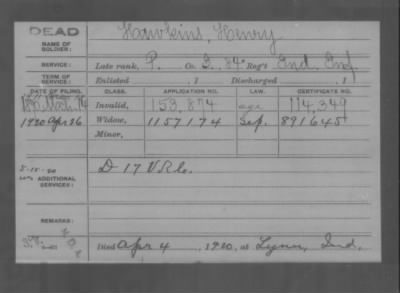 DEAD
NAME OF SOLDIER:
Hawkins, Henry
SERVICE:
Late rank, P. Co. 84 Reg't Ind. Inf.
TERM OF SERVICE:
Enlisted , 1 Discharged , 1
DATE OF FILING. CLASS. APPLICATION NO. LAW. CERTIFICATE NO.
Invalid, 153,874 114,349
1920 Apr 26 Widow, 1157174 Sep. 891645
Minor,
ADDITIONAL SERVICES:
D 17 V.R.C.
REMARKS:
Died Apr 4, 1920, at Lynn, Ind.